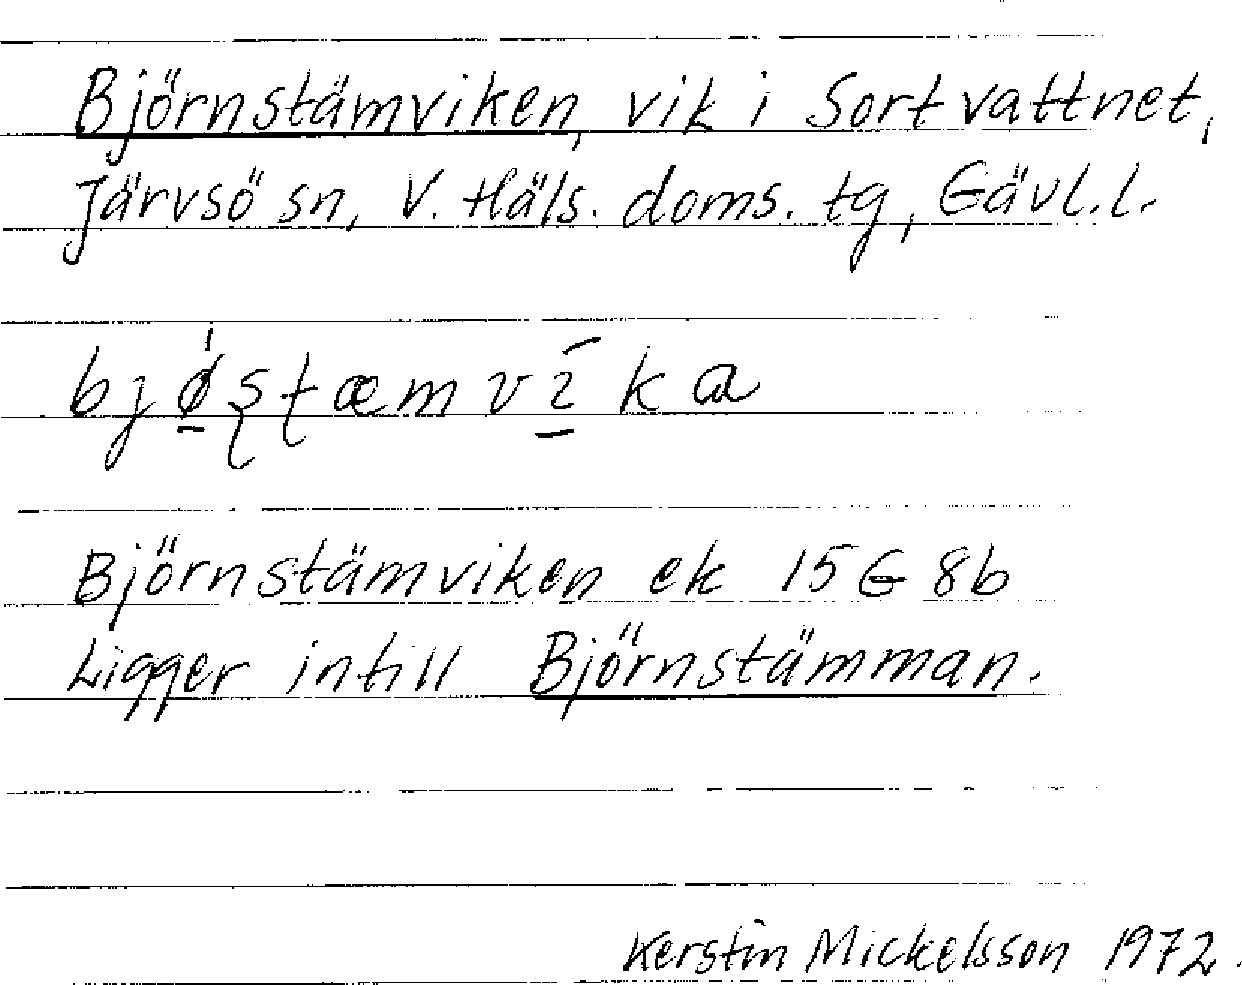 Björnstämviken, vik i Sortvattnet,
Järvsö sn, V. Häls. doms. tg, Gävl.l.
bjǿ̲ʂʈæmvī̲ka
Björnstämviken ek 15G 8b
Ligger intill Björnstämman.
Kerstin Mickelsson 1972.